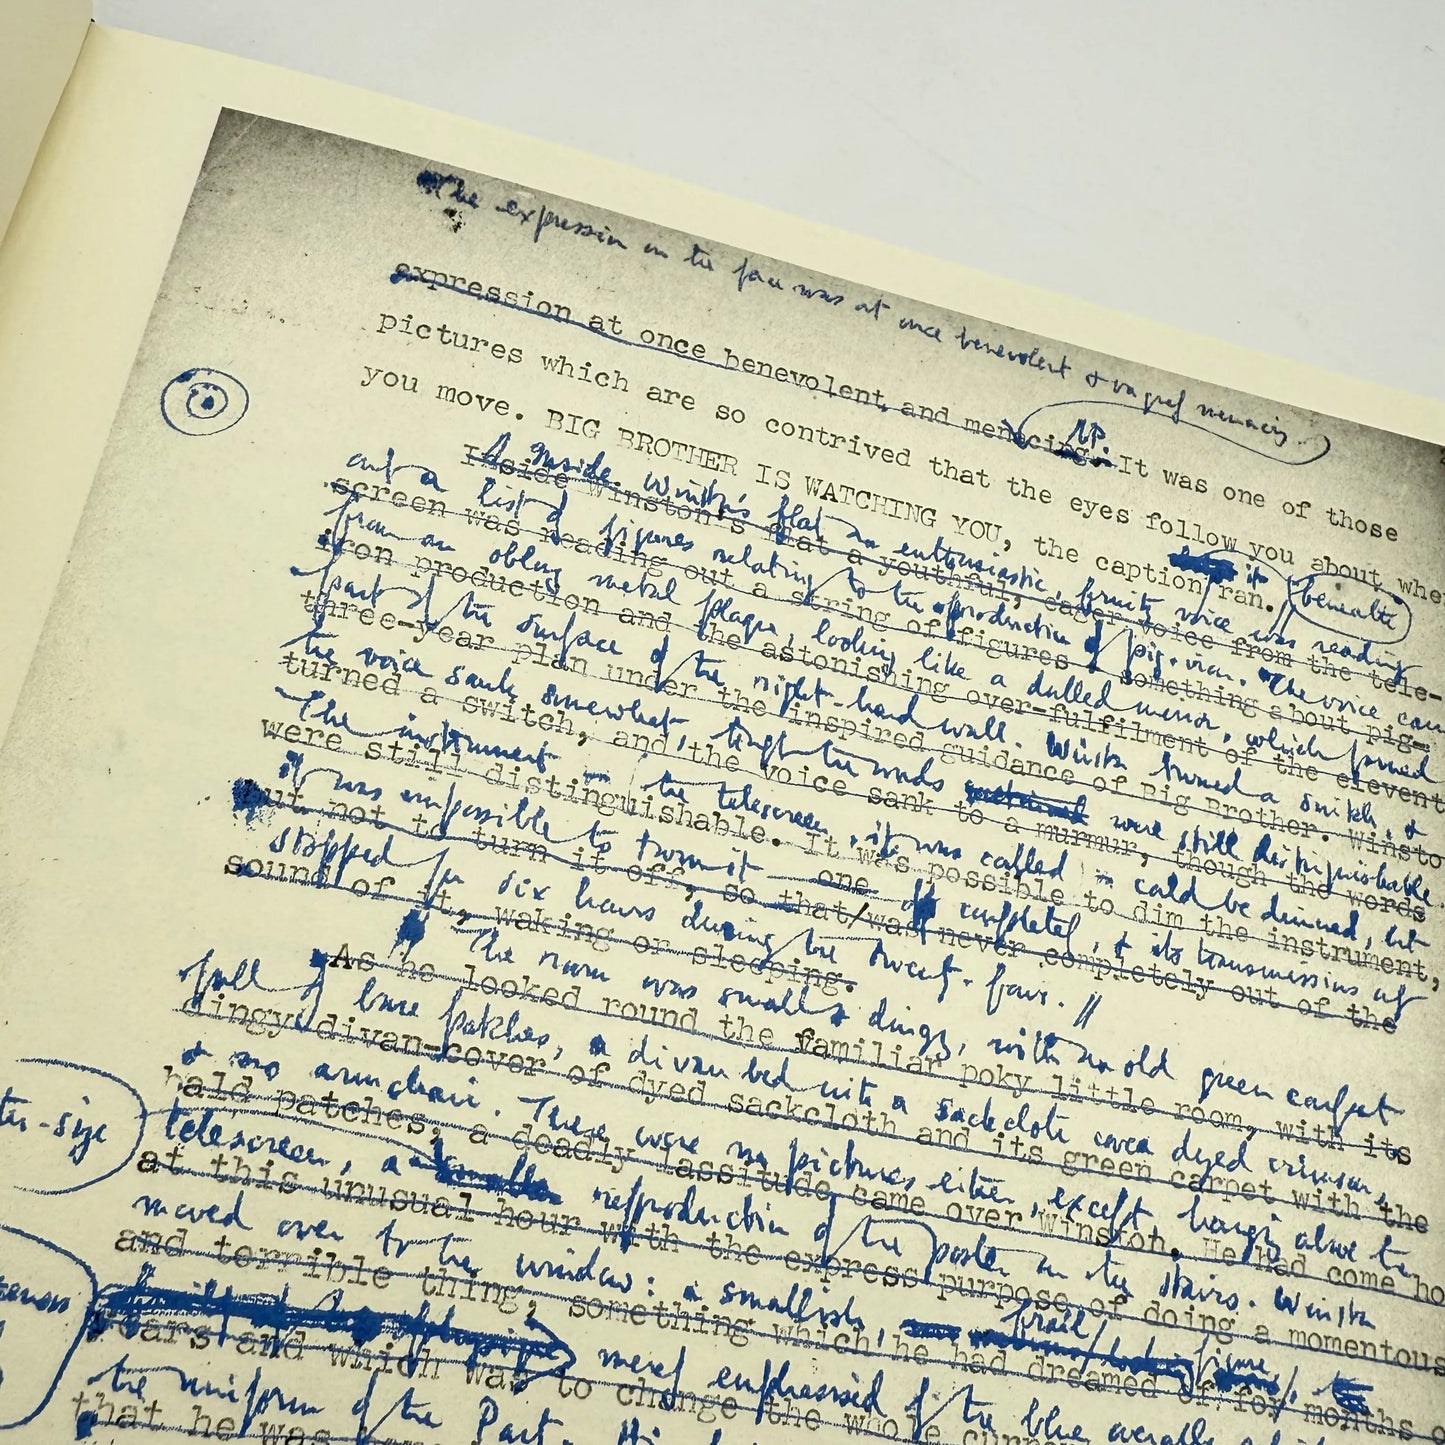 The expression on the face was at once benevolent & vaguely menacing.
expression at once benevolent, and menacing. It was one of those
pictures which are so contrived that the eyes follow you about when
you move. BIG BROTHER IS WATCHING YOU, the caption it ran.
beneath
Inside Winston's flat an enthusiastic, fruity voice was reading
Inside Winston's flat a youthful, eager voice from the tele-
out a list of figures relating to the production of pig-iron. The voice came
screen was reading out a string of figures something about pig-
from an oblong metal plaque, looking like a dulled mirror, which formed
iron production and the astonishing over-fulfilment of the eleventh
part of the surface of the right-hand wall. Winston turned a switch, &
three-year plan under the inspired guidance of Big Brother. Winsto
the voice sank somewhat, though the words were still distinguishable.
turned a switch, and the voice sank to a murmur, though the words
The instrument the telescreen, it was called could be dimmed, but
were still distinguishable. It was possible to dim the instrument,
it was impossible to turn it completely, & its transmission
but not to turn it off, so that/was never completely out of the
one
stopped for six hours during the twenty-four. //
sound of it, waking or sleeping.
The room was small & dingy, with an old green carpet
As he looked round the familiar poky little room, with its
full of bare patches, a divan bed with a sackcloth cover dyed crimson,
dingy divan-cover of dyed sackcloth and its green carpet with the
& no armchair. There were no pictures either, except hanging above the
bald patches, a deadly lassitude came over Winston. He had come ho
-size
telescreen, a reproduction of the poster on the stairs. Winston
at this unusual hour with the express purpose of doing a momentous
moved over to the window: a smallish, frail figure,
and terrible thing, something which he had dreamed of for months
merely emphasised by the blue overalls
years and which was to change the whole
the uniform of the Party.
that he was